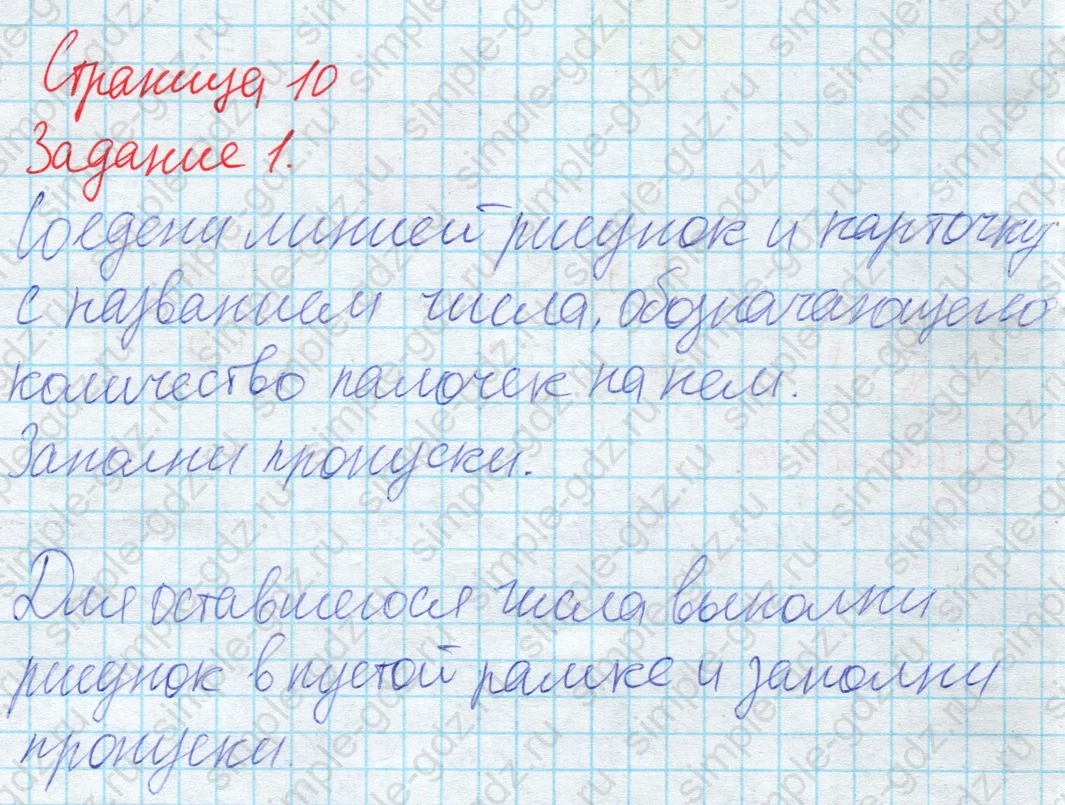 Страница 10
Задание 1.
Соедени линией рисунок и карточку
с названием числа, обозначающего
количество палочек на нем.
Заполни пропуски.
Для оставшегося числа выполни
рисунок в пустой рамке и заполни
пропуски.
simple-gdz.ru